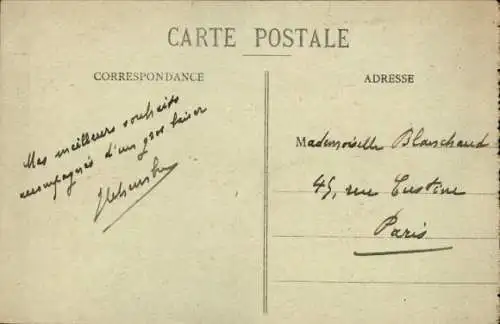 CARTE POSTALE
CORRESPONDANCE
ADRESSE
Mes meilleurs souhaits
accompagnés d'un gros baiser
Mademoiselle Blanchaud
45, rue Custine
Paris